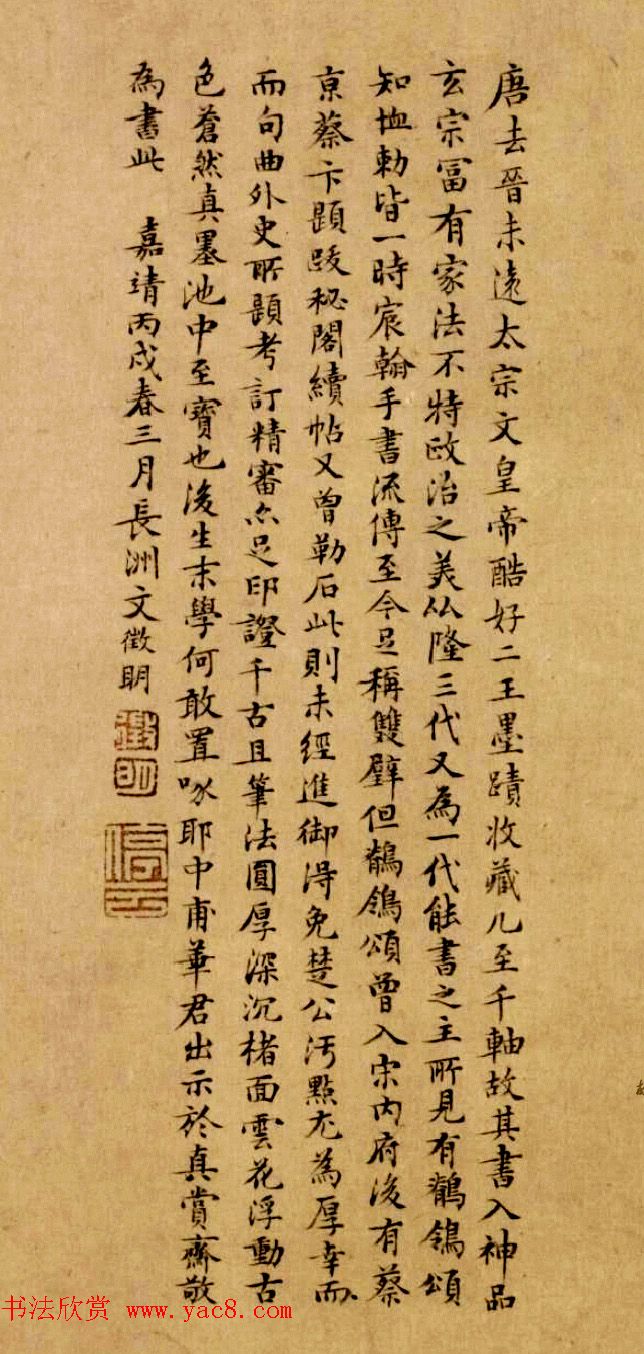 唐去晉未遠太宗文皇帝酷好二王墨蹟收藏几至千軸故其書入神品
玄宗富有家法不特政治之美仏隆三代又為一代能書之主所見有鶺鴒頌
知恤勅皆一時宸翰手書流傳至今足稱雙璧但鶺鴒頌曾入宋內府後有蔡
京蔡卞題跋秘閣續帖又曾勒石此則未經進御得免楚公汚點尤為厚幸而
而句曲外史所題考訂精審亦足印證千古且筆法圓厚深沉楮面雲花浮動古
色蒼然真墨池中至寶也後生末學何敢置啄耶中甫華君出示於真賞齋敬
為書此 嘉靖丙戌春三月長洲文徵明
徵明
書法欣賞 www.yac8.com